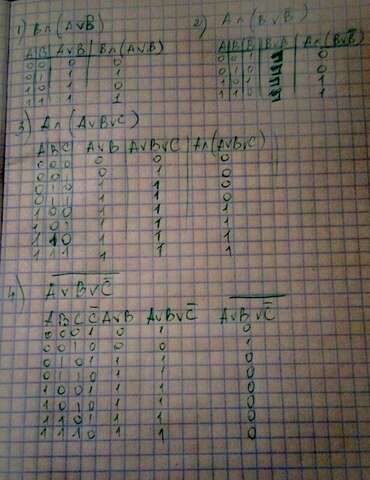 1) B∧(A∨B)
A|B| A∨B | B∧(A∨B)
0 0 0 0
0 1 1 1
1 0 1 0
1 1 1 1
2) A∧(B∨B̅)
A|B|B̅|B∨B̅| A∧(B∨B̅)
0 0 1 1 0
0 1 0 1 0
1 0 1 1 1
1 1 0 1 1
3) A∧(A∨B∨C)
A B C A∨B A∨B∨C A∧(A∨B∨C)
0 0 0 0 0 0
0 0 1 0 1 0
0 1 0 1 1 0
0 1 1 1 1 0
1 0 0 1 1 1
1 0 1 1 1 1
1 1 0 1 1 1
1 1 1 1 1 1
4) A∨B∨C̅
A B C C̅ A∨B A∨B∨C̅ A∨B∨C̅
0 0 0 1 0 1 0
0 0 1 0 0 0 1
0 1 0 1 1 1 0
0 1 1 0 1 1 0
1 0 0 1 1 1 0
1 0 1 0 1 1 0
1 1 0 1 1 1 0
1 1 1 0 1 1 0